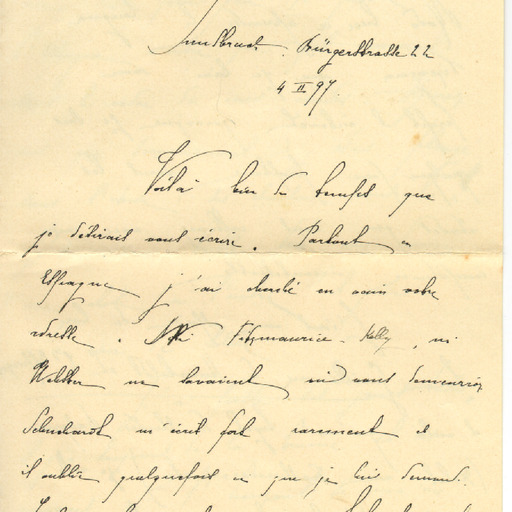 Innsbruck. Bürgerstrasse 22
4 II 97.
Voilà bien du temps que
je désirais vous écrire. Partout en
Espagne j'ai cherché en vain votre
adresse. Ni Fitzmaurice-Kelly, ni
Webster ne savaient où vous demeuriez
Schuchardt m'écrit fort rarement et
il oublie quelquefois ce que je lui demande.